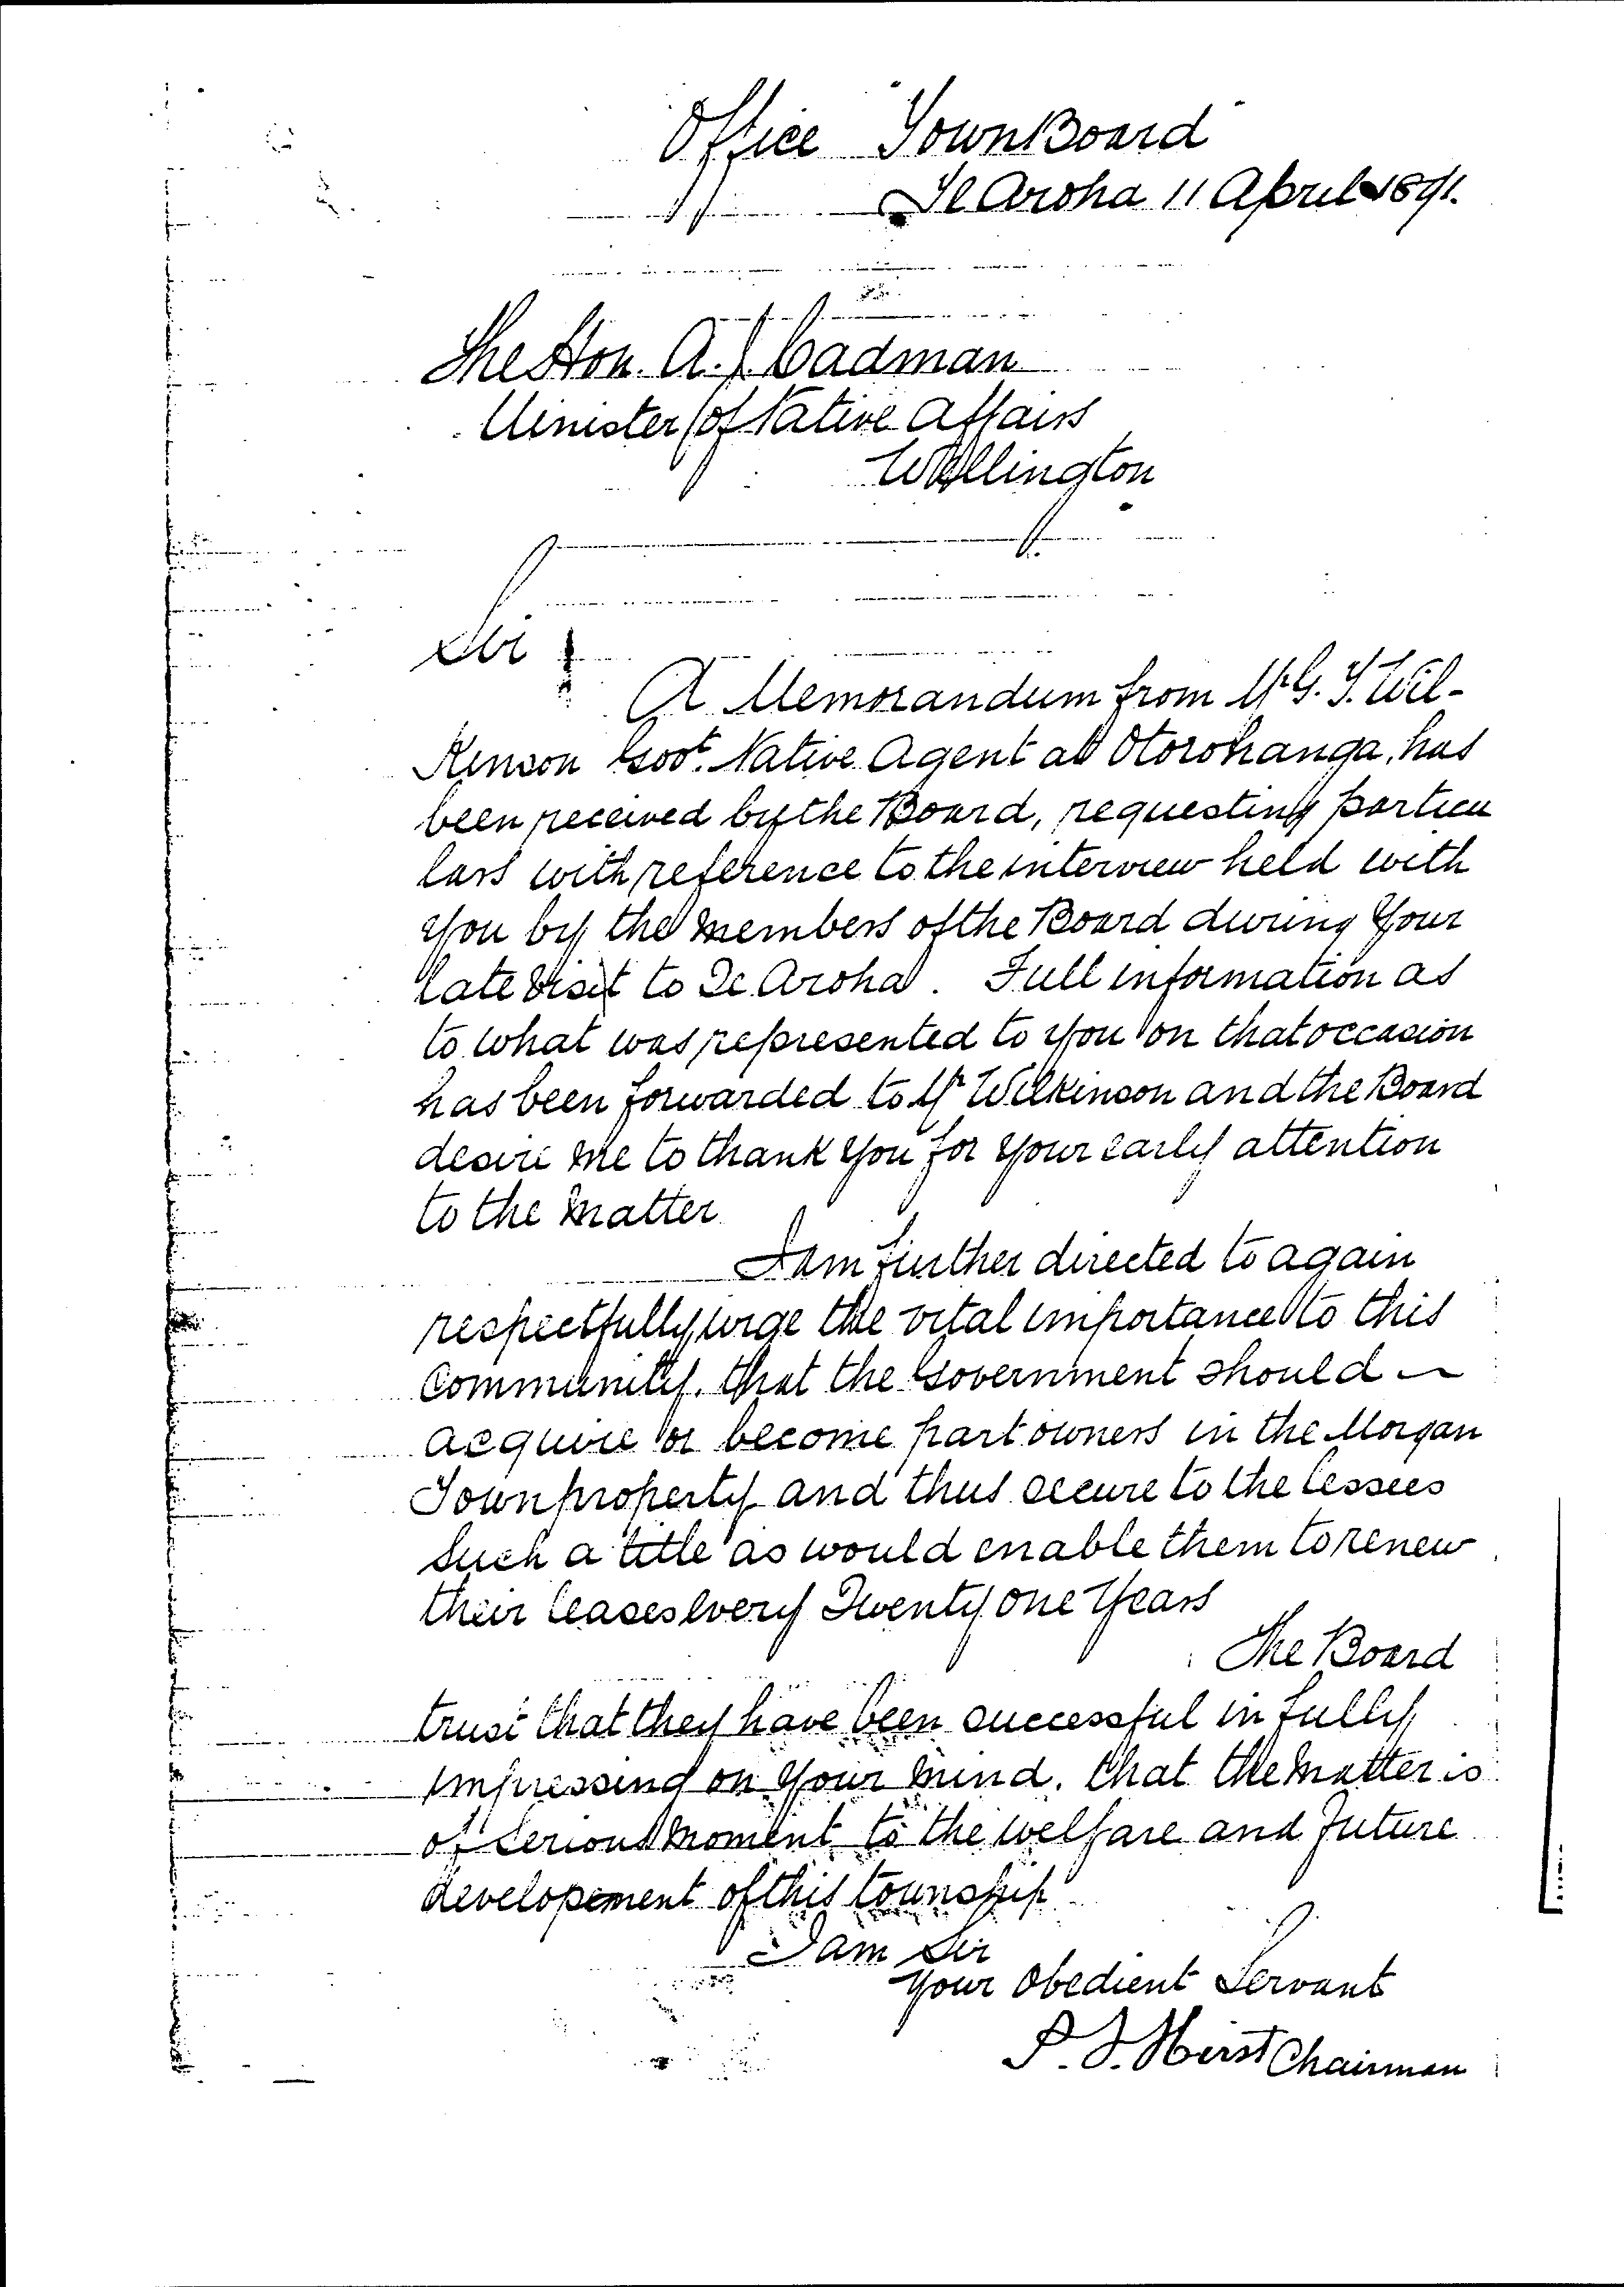 Office Town Board
Te Aroha 11 April 1891.
The Hon. A. J. Cadman
Minister of Native Affairs
Wellington
Sir
A Memorandum from Mr G. T. Wil-
kinson Govt. Native Agent at Otorohanga, has
been received by the Board, requesting particu
lars with reference to the interview held with
you by the members of the Board during Your
late visit to Te Aroha. Full information as
to what was represented to you on that occasion
has been forwarded to Mr Wilkinson and the Board
desire me to thank you for your early attention
to the matter
I am further directed to again
respectfully urge the vital importance to this
Community, that the Government should
acquire or become part owners in the Morgan
Town property and thus secure to the lessees
Such a title as would enable them to renew
their leases every Twenty one Years
The Board
trust that they have been successful in fully
impressing on your mind, that the matter is
of serious moment to the welfare and future
developement of this township
I am Sir
Your Obedient Servant
P. S. Hirst Chairman